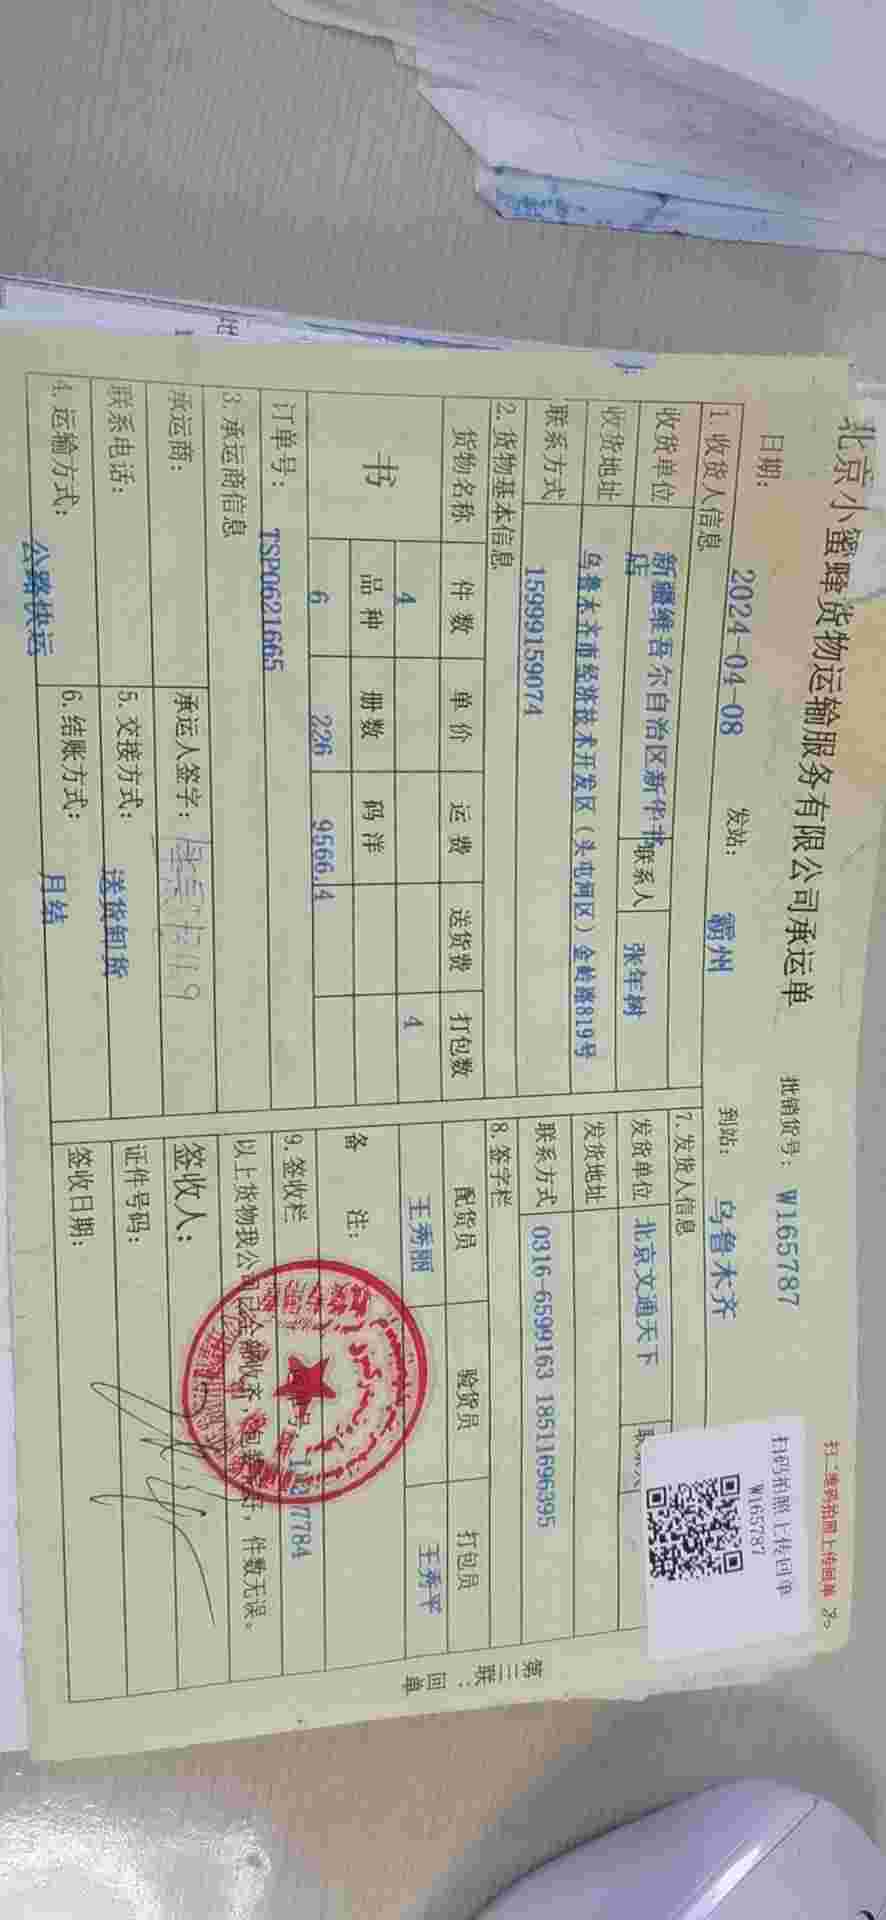 扫二维码拍照上传回单
北京小蜜蜂货物运输服务有限公司承运单
批销货号： W165787
扫码拍照上传回单
W165787
日期： 2024-04-08 发站： 霸州 到站： 乌鲁木齐
1.收货人信息 7.发货人信息
收货单位 新疆维吾尔自治区新华书店 联系人 张年树 发货单位 北京文通天下
收货地址 乌鲁木齐市经济技术开发区（头屯河区）金岭路819号 发货地址
联系方式 15999159074 联系方式 0316-6599163 18511696395
2.货物基本信息 8.签字栏
货物名称 件数 单价 运费 送货费 打包数 配货员 验货员 打包员
书 4 4 王秀丽 王秀平
品种 册数 码洋 备注：
6 226 9566.4
订单号： TSP0621665 9.签收栏
3.承运商信息 以上货物我公司已全部收齐，包装完好，件数无误。
承运商： 承运人签字： 签收人：
联系电话： 5.交接方式： 送货卸货 证件号码：
4.运输方式： 公路快运 6.结账方式： 月结 签收日期：
第三联：回单